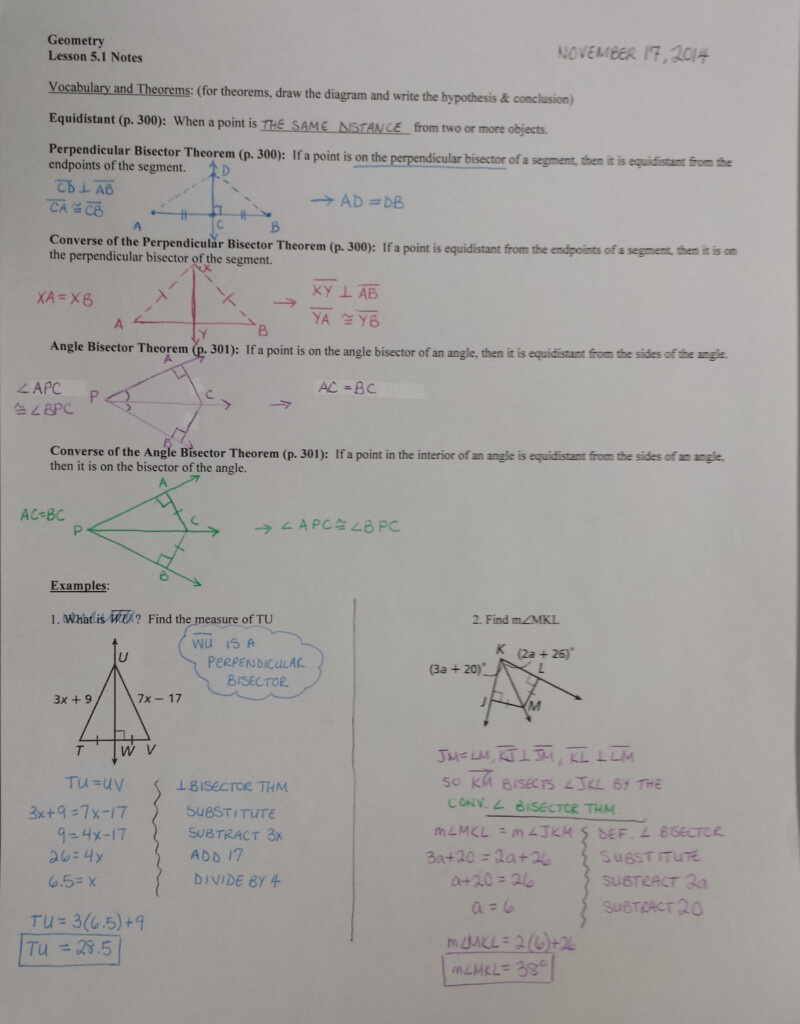 Geometry
Lesson 5.1 Notes
NOVEMBER 17, 2014
Vocabulary and Theorems: (for theorems, draw the diagram and write the hypothesis & conclusion)
Equidistant (p. 300): When a point is THE SAME DISTANCE from two or more objects.
Perpendicular Bisector Theorem (p. 300): If a point is on the perpendicular bisector of a segment, then it is equidistant from the
endpoints of the segment.
CD ⊥ AB
CA ≅ CB
D
A
C
B
→ AD = DB
Converse of the Perpendicular Bisector Theorem (p. 300): If a point is equidistant from the endpoints of a segment, then it is on
the perpendicular bisector of the segment.
XA = XB
X
A
Y
B
→ XY ⊥ AB
YA ≅ YB
Angle Bisector Theorem (p. 301): If a point is on the angle bisector of an angle, then it is equidistant from the sides of the angle.
∠APC
≅ ∠BPC
A
P
C
B
→ AC = BC
Converse of the Angle Bisector Theorem (p. 301): If a point in the interior of an angle is equidistant from the sides of an angle,
then it is on the bisector of the angle.
AC=BC
A
P
C
B
→ ∠APC ≅ ∠BPC
Examples:
1. What is WU? Find the measure of TU
WU IS A
PERPENDICULAR
BISECTOR
U
3x + 9
7x − 17
T
W
V
TU = UV ⊥ BISECTOR THM
3x+9 = 7x-17 SUBSTITUTE
9 = 4x-17 SUBTRACT 3x
26 = 4x ADD 17
6.5 = x DIVIDE BY 4
TU = 3(6.5)+9
TU = 28.5
2. Find m∠MKL
K
(2a + 26)°
(3a + 20)°
L
J
M
JM = LM, KJ ⊥ JM, KL ⊥ LM
SO KM BISECTS ∠JKL BY THE
CONV. ∠ BISECTOR THM.
m∠MKL = m∠JKM DEF. ∠ BISECTOR
3a+20 = 2a+26 SUBSTITUTE
a+20 = 26 SUBTRACT 2a
a = 6 SUBTRACT 20
m∠MKL = 2(6)+26
m∠MKL = 38°